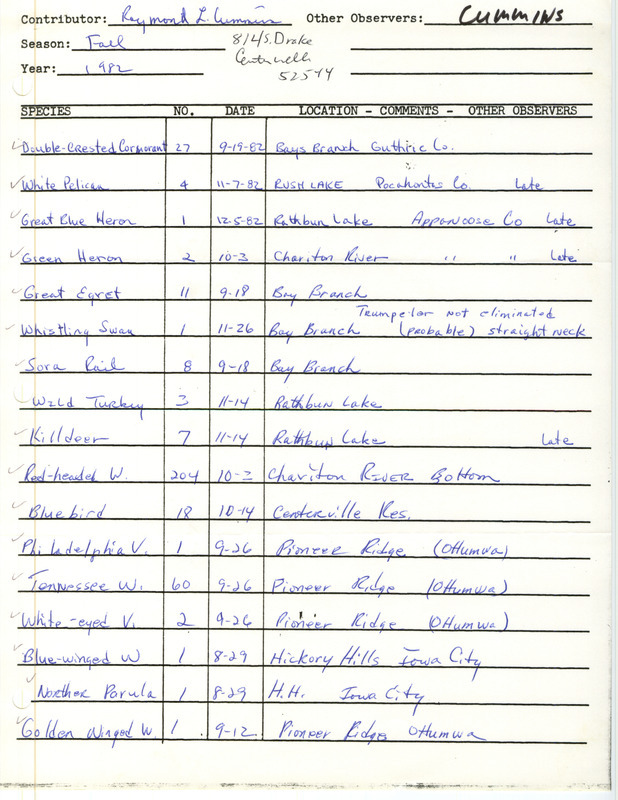 Contributor: Raymond L. Cummins Other Observers: Cummins
Season: Fall 814 S. Drake
Centerville
Year: 1982 52544
SPECIES NO. DATE LOCATION - COMMENTS - OTHER OBSERVERS
Double-Crested Cormorant 27 9-19-82 Bays Branch Guthrie Co.
White Pelican 4 11-7-82 RUSH LAKE Pocahontas Co. Late
Great Blue Heron 1 12-5-82 Rathbun Lake Appanoose Co Late
Green Heron 2 10-3 Chariton River " " Late
Great Egret 11 9-18 Bay Branch
Trumpeter not eliminated
Whistling Swan 1 11-26 Bay Branch (probable) straight neck
Sora Rail 8 9-18 Bay Branch
Wild Turkey 3 11-14 Rathbun Lake
Killdeer 7 11-14 Rathbun Lake Late
Red-headed W. 204 10-2 Chariton River Bottom
Bluebird 18 10-14 Centerville Res.
Philadelphia V. 1 9-26 Pioneer Ridge (Ottumwa)
Tennessee W. 60 9-26 Pioneer Ridge (Ottumwa)
White-eyed V. 2 9-26 Pioneer Ridge (Ottumwa)
Blue-winged W 1 8-29 Hickory Hills Iowa City
Norther Parula 1 8-29 H.H. Iowa City
Golden Winged W. 1 9-12 Pioneer Ridge Ottumwa